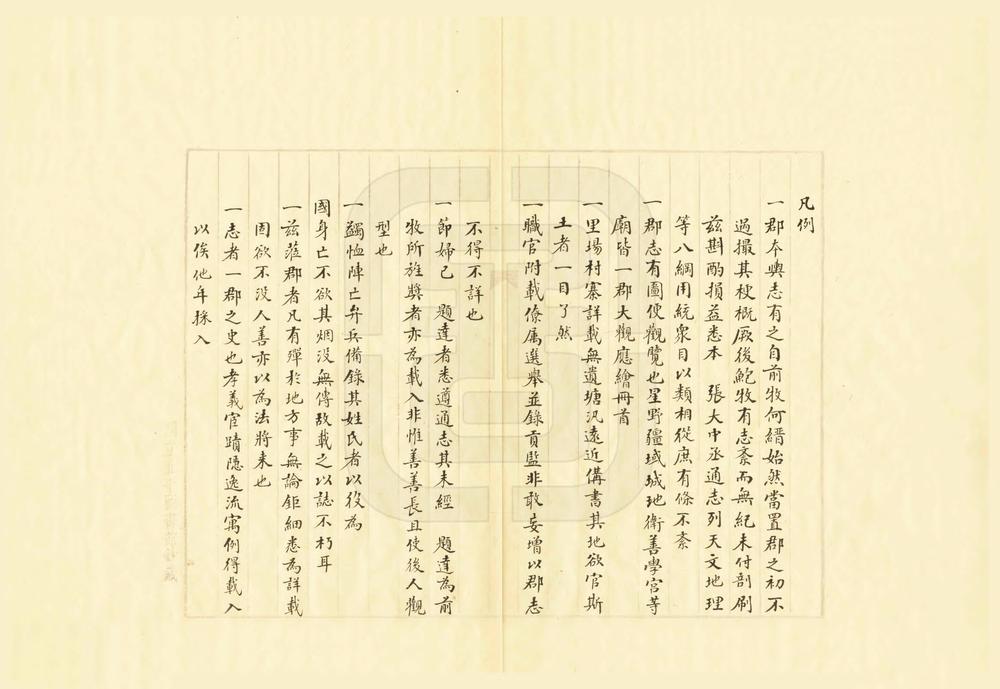 凡例
一郡夲輿志有之自前牧何縉始然當置郡之初不
過撮其梗概厥後鮑牧有志紊而無紀未付剖刷
茲斟酌損益悉本　張大中丞通志列天文地理
等八綱用統衆目以類相從庶有條不紊
一郡志有圖便觀覽也星野疆域城池衛善學宮等
廟皆一郡大觀應繪冊首
一里場村寨詳載無遺塘汛遠近備書其地欲官斯
土者一目了然
一職官附載僚属選舉並錄貢監非敢妄增以郡志
不得不詳也
一節婦已　題達者悉遵通志其未經　題達為前
牧所旌獎者亦為載入非惟善善長且使後人觀
型也
一蠲恤陣亡弁兵備錄其姓氏者以役為
國身亡不欲其烟没無傳故載之以誌不朽耳
一茲蒞郡者凡有殫於地方事無論鉅細悉為詳載
固欲不没人善亦以為法將来也
一志者一郡之史也孝義宦蹟隱逸流寓例得載入
以俟他年採入